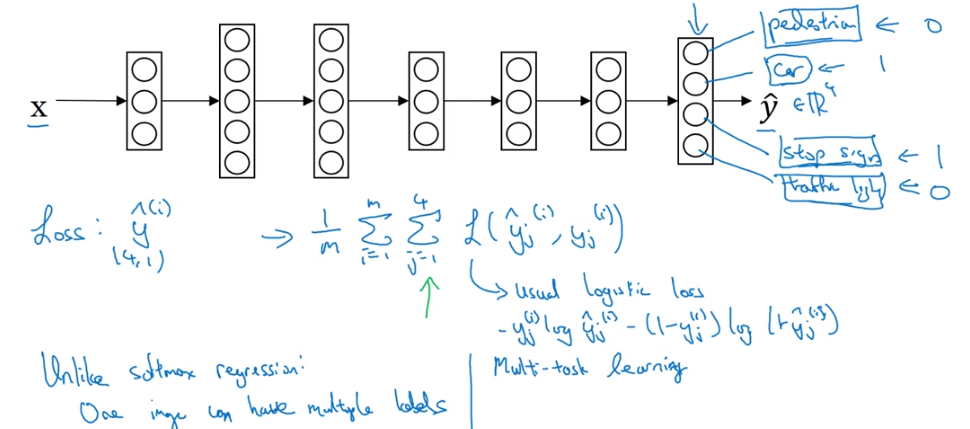 pedestrian ← 0
car ← 1
x
ŷ ∈ ℝ⁴
stop sign ← 1
traffic light ← 0
Loss: ŷ^(i) → 1/m Σ_{i=1}^{m} Σ_{j=1}^{4} L(ŷ_j^(i), y_j^(i))
(4,1)
↳ usual logistic loss
- y_j^(i) log ŷ_j^(i) - (1-y_j^(i)) log (1-ŷ_j^(i))
Unlike softmax regression:
One image can have multiple labels
Multi-task learning